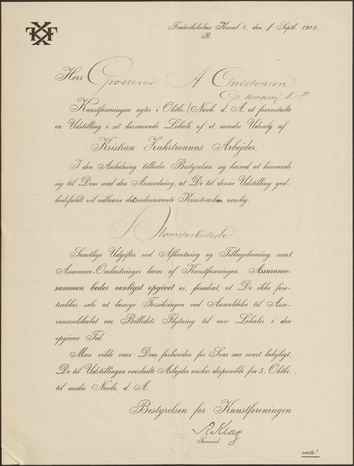 Frederiksholms Kanal 4, den 1 Septb. 1904.
B.
Herr Grosserer A Christensen
Kunstforeningen agter i Oktbr./Novb. d. A. at foranstalte
en Udstilling i sit herværende Lokale af et mindre Udvalg af
Kristian Zahrtmanns Arbejder.
I den Anledning tillader Bestyrelsen sig herved at henvende
sig til Dem med den Anmodning, at De til denne Udstilling god-
hedsfuldt vil udlaane
Samtlige Udgifter ved Afhentning og Tilbagelevering samt
Assurance-Omkostninger bæres af Kunstforeningen. Assurance-
summen bedes venligst opgivet os, forudsat, at De ikke fore-
trækker selv at besørge Forsikringen ved Anmeldelse til As-
suranceselskabet om Billedets Flytning til vore Lokaler i den
opgivne Tid.
Man vilde være Dem forbunden for Svar saa snart belejligt.
De til Udstillingen modtagne Arbejder ønskes disponible fra 5. Oktbr.
til medio Novb. d. A.
Bestyrelsen for Kunstforeningen
vend!